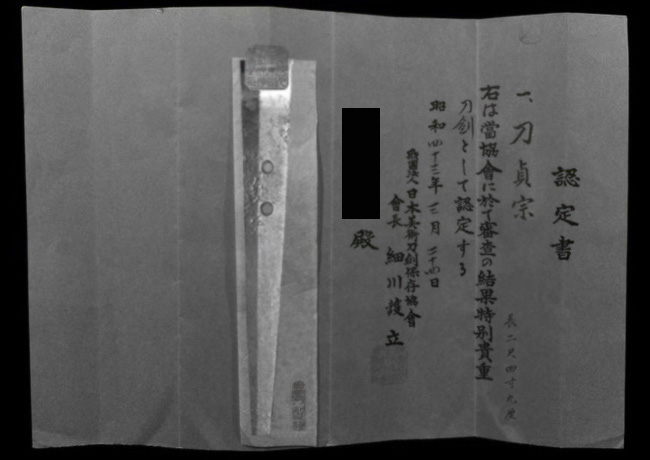 認定書
一、刀 貞宗
長二尺四寸九度
右は當協會に於て審査の結果特別貴重
刀剣として認定する
昭和四十三年三月二十四日
財團法人日本美術刀剣保存協會
會長 細川護立
殿